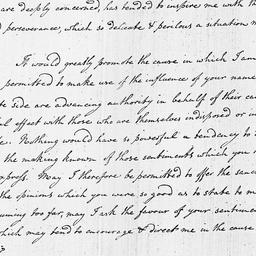 are deeply concerned, has tended to inspire me with th
perseverance, which so delicate & perilous a situation
It would greatly promote the cause in which I am
permitted to make use of the influence of your name
te side are advancing authority in behalf of their ca
ful effect with those who are themselves indisposed or in
Nothing would have so powerful a tendency to
the making known of those sentiments which you
May I therefore be permitted to offer the sanc
the opinions which you were so good as to state to m
uming too far, may I ask the favour of your sentime
which may tend to encourage & direct me in the cause